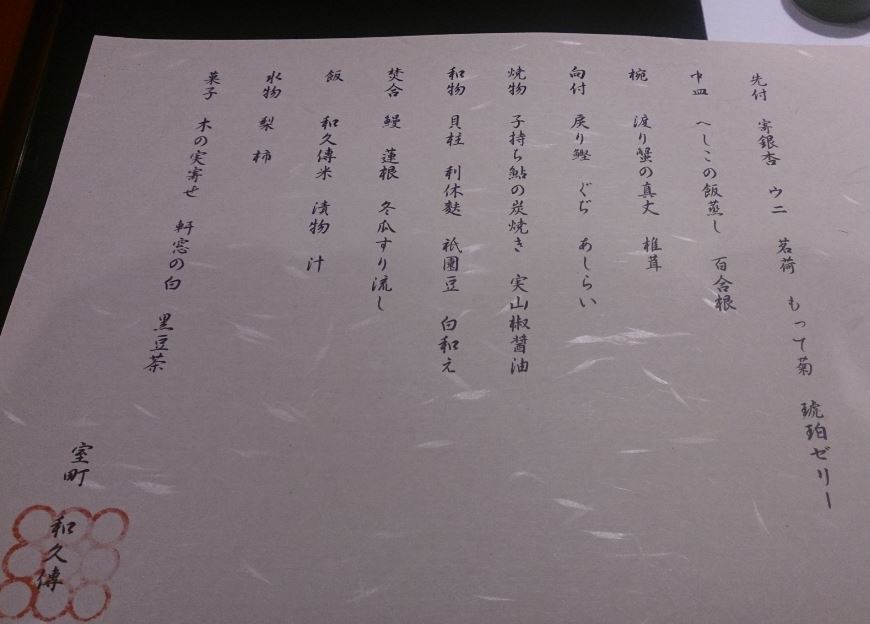 先付 寄銀杏 ウニ 茗荷 もって菊 琥珀ゼリー
中皿 へしこの飯蒸し 百合根
椀 渡り蟹の真丈 椎茸
向付 戻り鰹 ぐぢ あしらい
焼物 子持ち鮎の炭焼き 実山椒醤油
和物 貝柱 利休麩 祇園豆 白和え
焚合 鰻 蓮根 冬瓜すり流し
飯 和久傳米 漬物 汁
水物 梨 柿
菓子 木の実寄せ 軒窓の白 黒豆茶
室町 和久傳